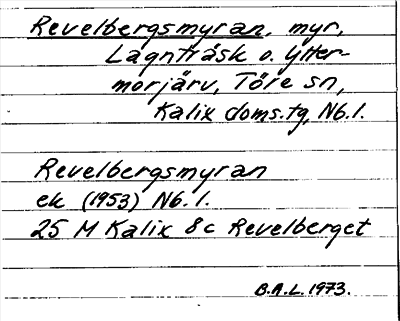 Revelbergsmyran, myr,
Lagnträsk o. Ytter-
morjärv, Töre sn,
Kalix doms.tg, Nb.l.
Revelbergsmyran
ek (1953) Nb.l.
25 M Kalix 8c Revelberget
B.A.L. 1973.